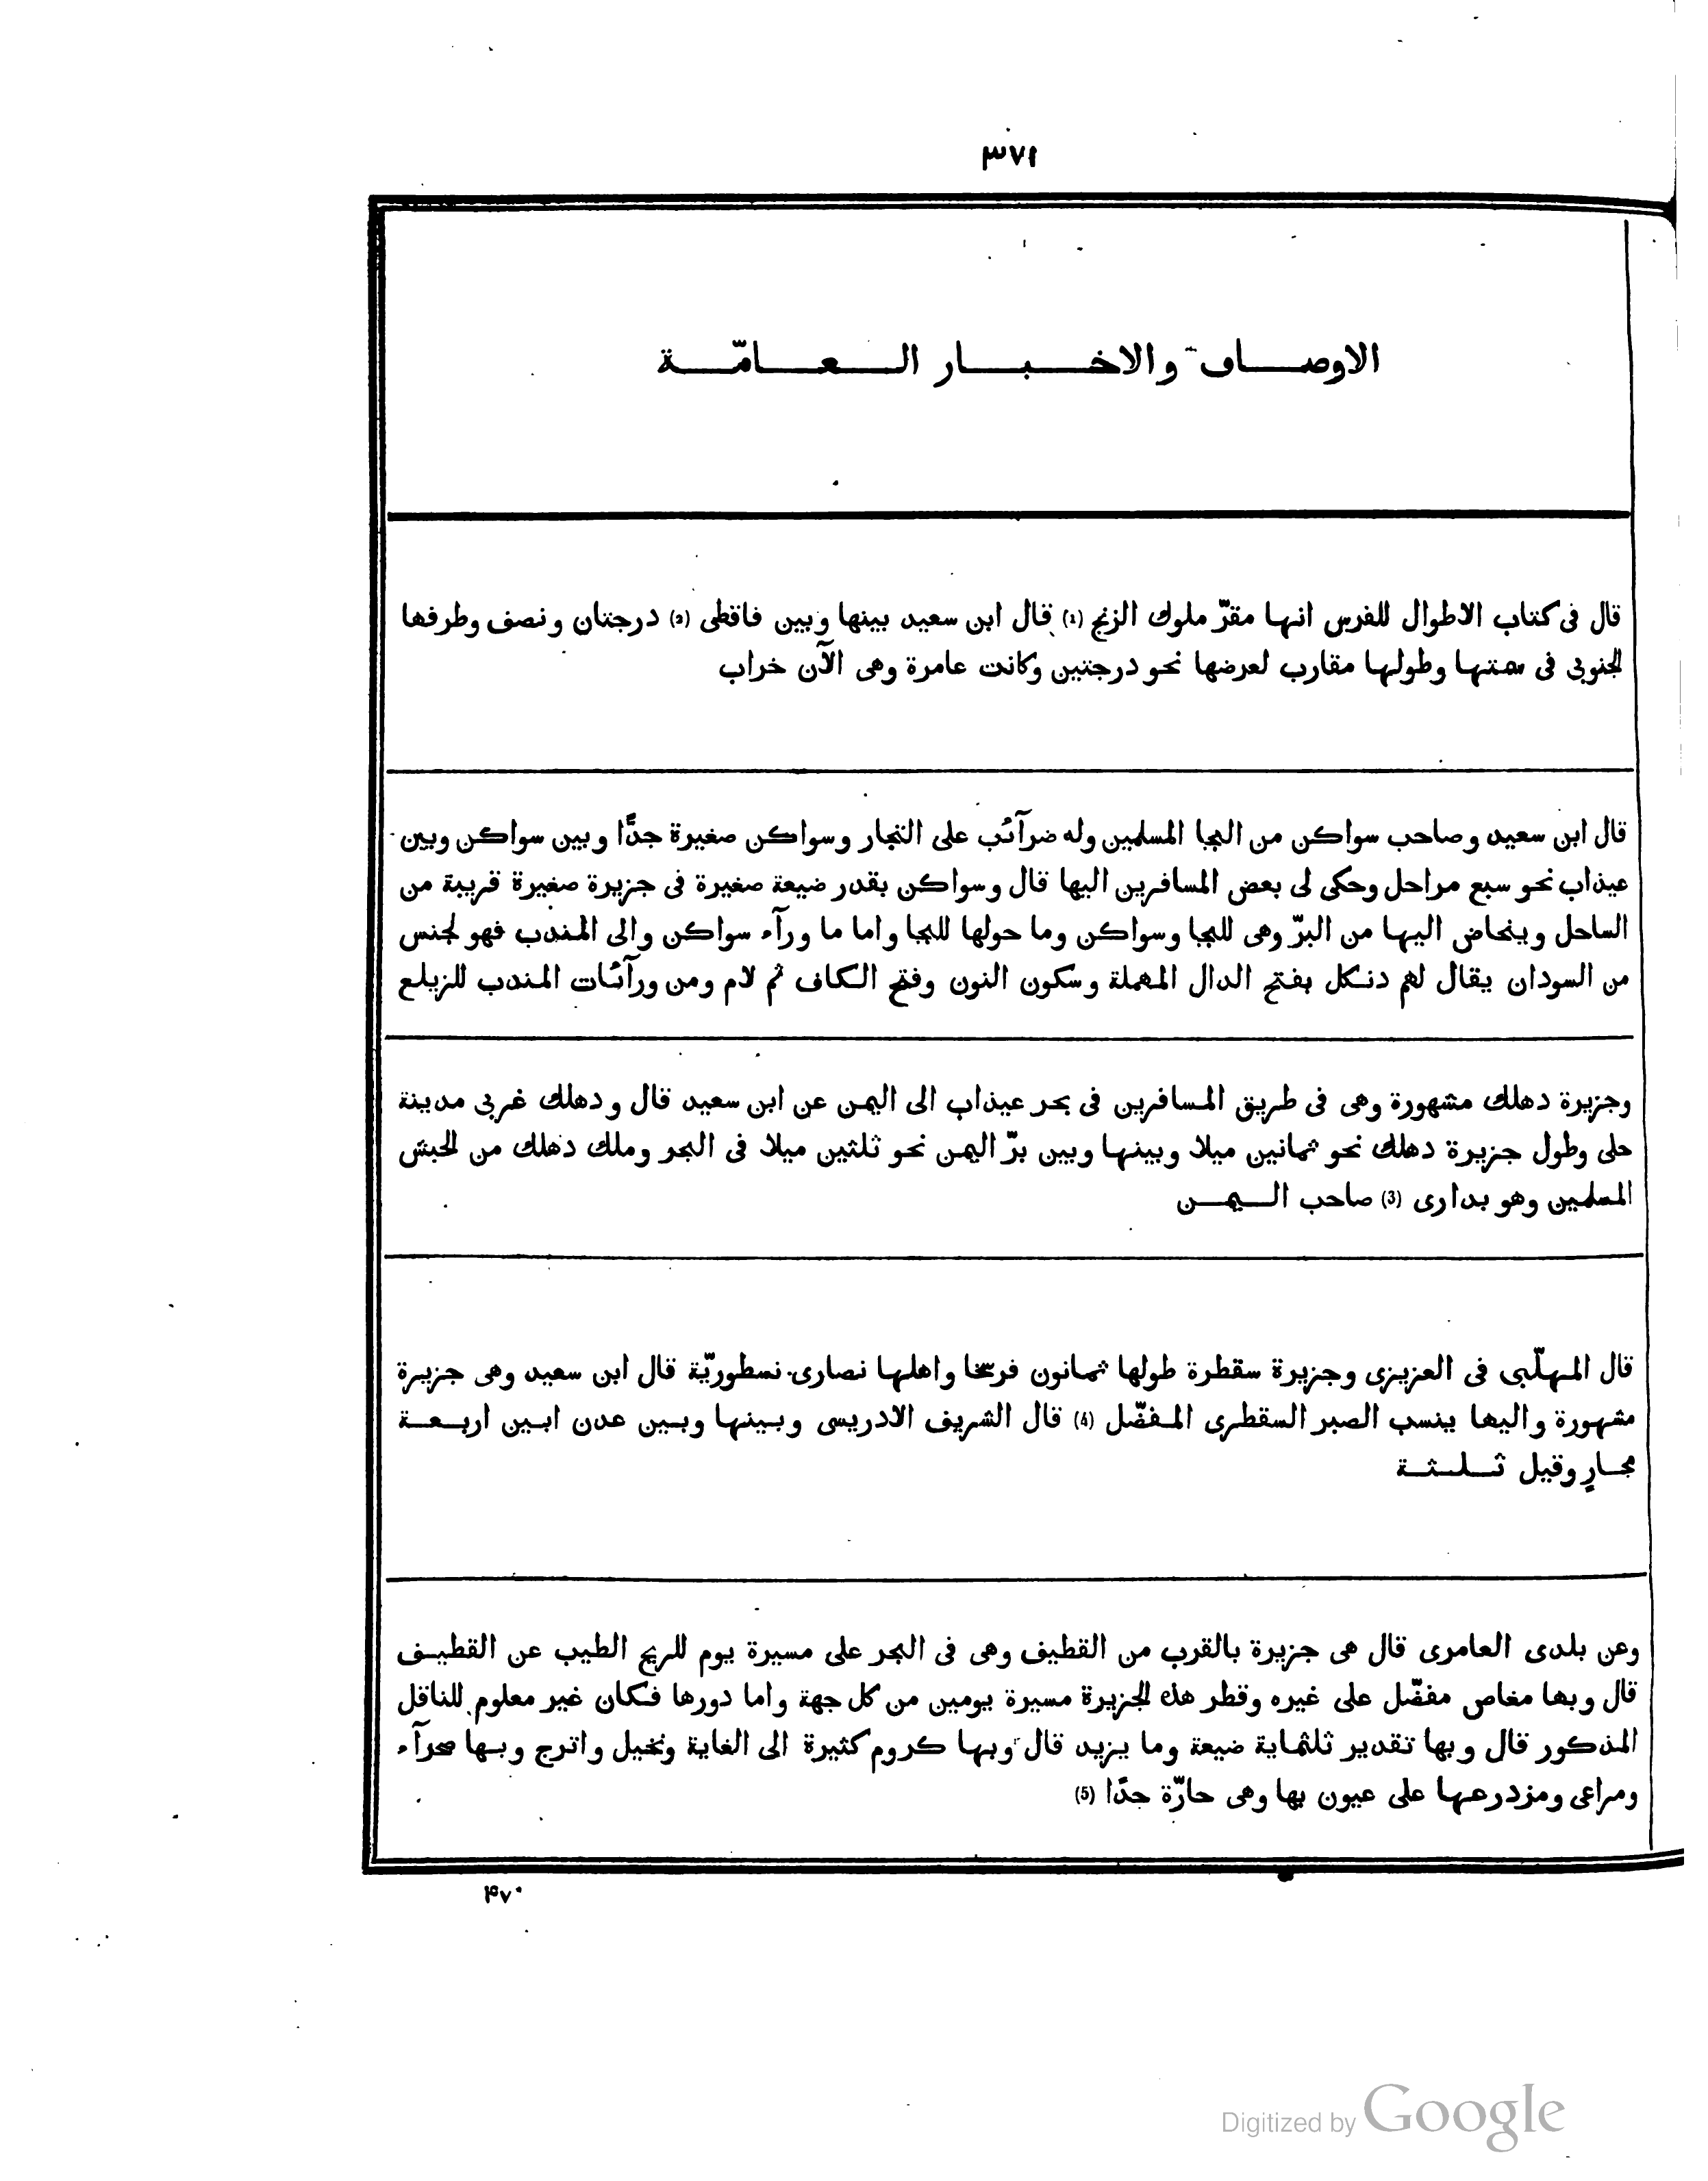 ٣٧١
الاوصاف والاخبار العامّة
قال فى كتاب الاطوال للفرس انها مقرّ ملوك الزنج (1) قال ابن سعيد بينها وبين فاقطى (2) درجتان ونصف وطرفها
الجنوبى فى سمتها وطولها مقارب لعرضها نحو درجتين وكانت عامرة وهى الآن خراب
قال ابن سعيد وصاحب سواكن من البجا المسلمين وله ضرآئب على التجار وسواكن صغيرة جدًّا وبين سواكن وبين
عيذاب نحو سبع مراحل وحكى لى بعض المسافرين اليها قال وسواكن بقدر ضيعة صغيرة فى جزيرة صغيرة قريبة من
الساحل ويخاض اليها من البرّ وهى للبجا وسواكن وما حولها للبجا واما ما ورآء سواكن والى المندب فهو لجنس
من السودان يقال لهم دنكل بفتح الدال المهملة وسكون النون وفتح الكاف ثم لام ومن ورآئات المندب للزيلع
وجزيرة دهلك مشهورة وهى فى طريق المسافرين فى بحر عيذاب الى اليمن عن ابن سعيد قال ودهلك غربى مدينة
حلى وطول جزيرة دهلك نحو ثمانين ميلا وبينها وبين برّ اليمن نحو ثلثين ميلا فى البحر وملك دهلك من الحبش
المسلمين وهو يدارى (3) صاحب اليمن
قال المهلّبى فى العزيزى وجزيرة سقطرة طولها ثمانون فرسخا واهلها نصارى نسطوريّة قال ابن سعيد وهى جزيرة
مشهورة واليها ينسب الصبر السقطرى المفضّل (4) قال الشريف الادريسى وبينها وبين عدن ابين اربعة
مجارٍ وقيل ثلثة
وعن بلدى العامرى قال هى جزيرة بالقرب من القطيف وهى فى البحر على مسيرة يوم للريح الطيب عن القطيف
قال وبها مغاص مفضّل على غيره وقطر هذه الجزيرة مسيرة يومين من كل جهة واما دورها فكان غير معلوم للناقل
المذكور قال وبها تقدير ثلثماية ضيعة وما يزيد قال وبها كروم كثيرة الى الغاية ونخيل واترج وبها صحرآء
ومراعى ومزدرعها على عيون بها وهى حارّة جدًا (5)
۴٧٠
Digitized by Google